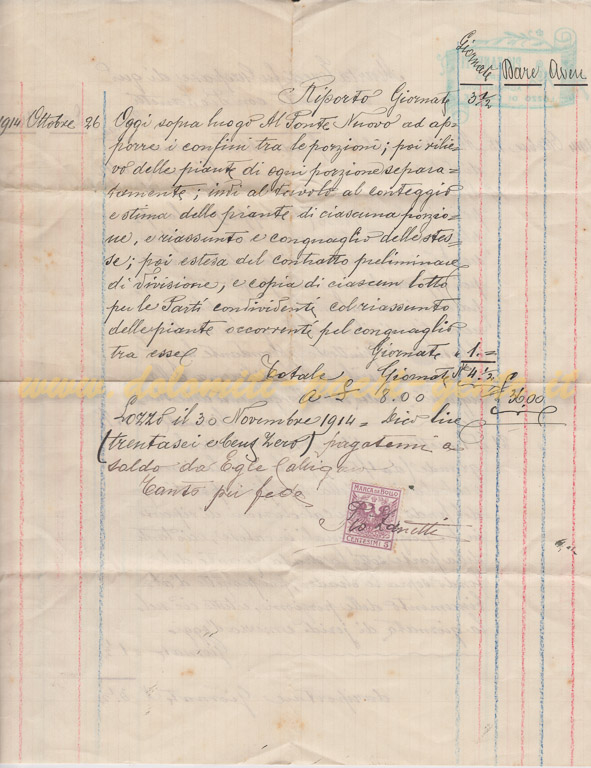 Giornate Dare Avere
Riporto Giornate 3 1/2
1914 Ottobre 26 Oggi sopra luogo Al Ponte Nuovo ad ap=
porre i confini tra le porzioni; poi rilie=
vo delle piante di ogni porzione separa=
tamente; indi al tavolo al conteggio
e stima delle piante di ciascuna porzio=
ne, e riassunto e conguaglio delle stes=
se; poi estesa del contratto preliminare
di divisione, e copia di ciascun lotto
per le Parti condividenti col riassunto
delle piante occorrenti pel conguaglio
tra esse Giornate " 1.=
Totale Giornate N° 4.1/2
a L 8.00 L 36.00
Lozzo il 30 Novembre 1914= Dico lire
(trentasei e Cent Zero) pagatemi a
saldo da Egle
Tanto per fede
Pio Zanetti
MARCA DA BOLLO
CENTESIMI 5